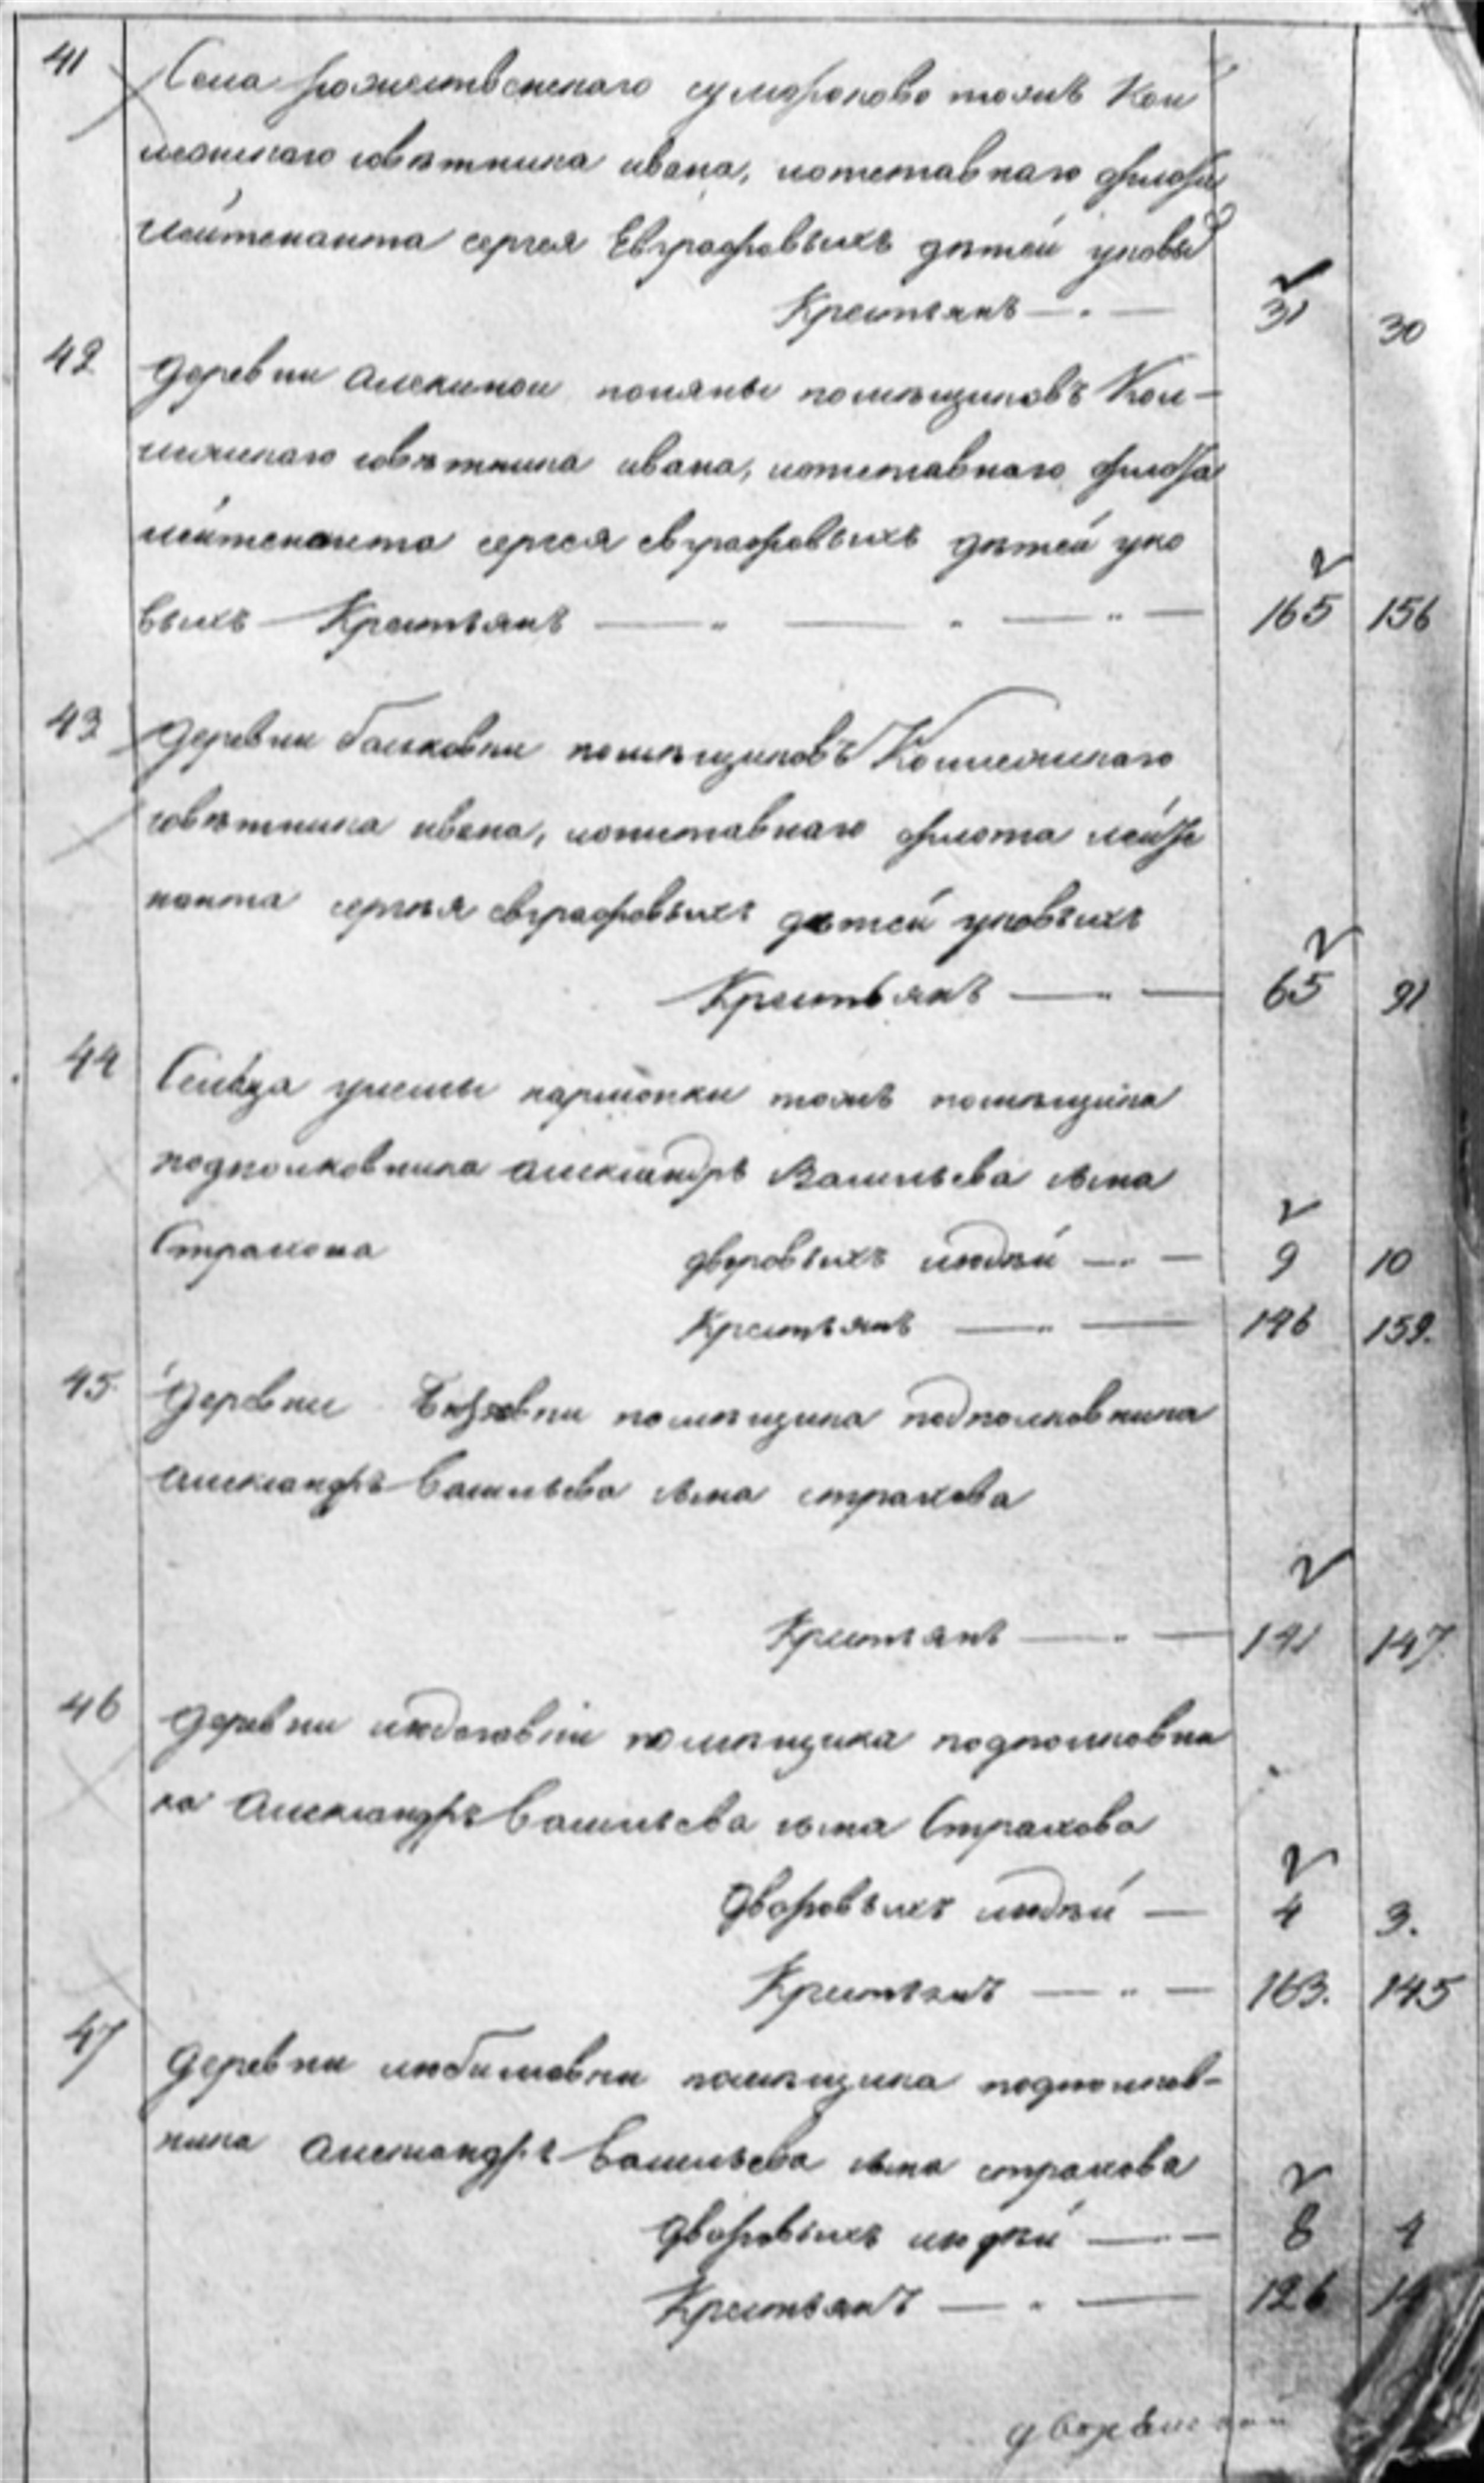 41 Села рожественскаго сумароково тожъ Кол
лежскаго советника ивана, иотставнаго флота
лейтенанта сергея Евграфовыхъ дѣтей уковы
Крестьянъ — " — 31 30
42 деревни алекиной поляны помѣщиковъ Кол-
лежскаго советника ивана, иотставнаго флота
лейтенанта сергея евграфовыхъ дѣтей уко
выхъ Крестьянъ — " — " — " — 165 156
43 деревни балковки помѣщиковъ Коллежскаго
советника ивана, иотставнаго флота лейте
нанта сергѣя евграфовыхъ дѣтей уковыхъ
Крестьянъ — " — 65 91
44 Сельца тожъ помѣщика
подполковника александръ Васильева сына
Страхова дворовыхъ людѣй — " — 9 10
Крестьянъ — " — 146 159.
45 деревни помѣщика подполковника
александръ васильева сына страхова
Крестьянъ — " — 141 147
46 деревни помѣщика подполковни
ка александръ васильева сына Страхова
дворовыхъ людѣй — 4 3.
Крестьянъ — " — 163. 145
47 деревни любимовки помѣщика подполков-
ника александръ васильева сына страхова
дворовыхъ людѣй — " — 8 4
Крестьянъ — " — 126